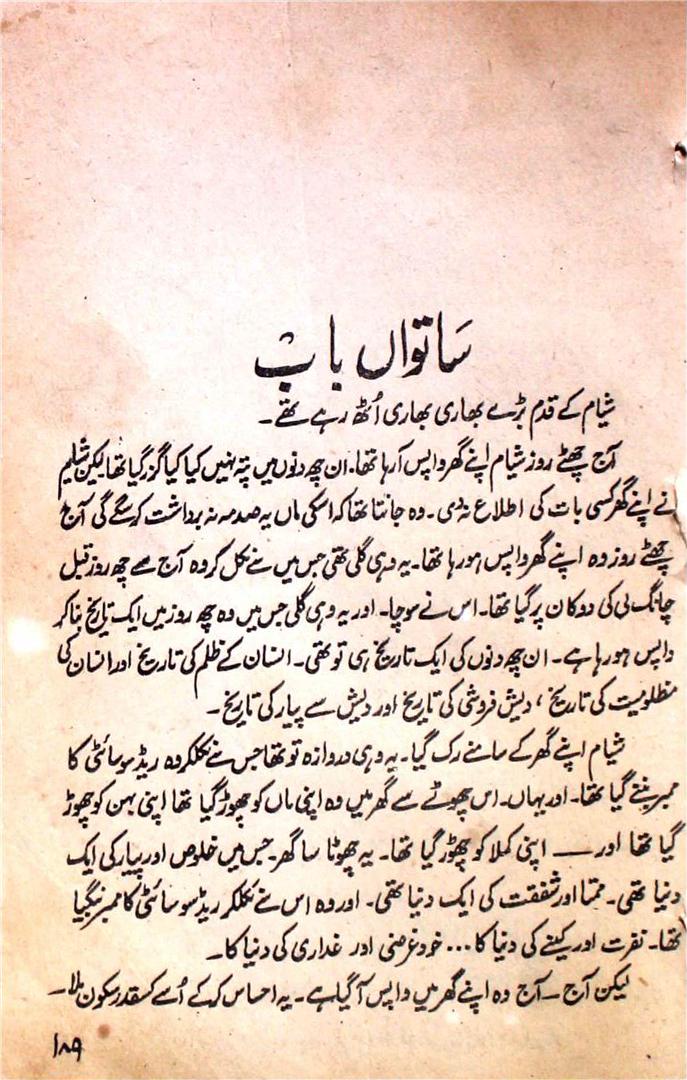 ساتواں باب
شیام کے قدم بڑے بھاری بھاری اُٹھ رہے تھے۔
آج چھٹے روز شیام اپنے گھر واپس آرہا تھا۔ ان چھ دنوں میں پتہ نہیں کیا کیا گزر گیا تھا لیکن شیام
نے اپنے گھر کسی بات کی اطلاع نہ دی۔ وہ جانتا تھا کہ اسکی ماں یہ صدمہ نہ برداشت کرسکے گی آج
چھٹے روز وہ اپنے گھر واپس ہو رہا تھا۔ یہ وہی گلی تھی جس میں سے نکل کر وہ آج سے چھ روز قبل
چانگ لی کی دوکان پر گیا تھا۔ اس نے سوچا۔ اور یہ وہی گلی جس میں وہ چھ روز میں ایک تاریخ بناکر
واپس ہو رہا ہے۔ ان چھ دنوں کی ایک تاریخ ہی تو تھی۔ انسان کے ظلم کی تاریخ اور انسان کی
مظلومیت کی تاریخ، دیش فروشی کی تاریخ اور دیش سے پیار کی تاریخ۔
شیام اپنے گھر کے سامنے رک گیا۔ یہ وہی دروازہ تو تھا جس سے نکلکر وہ ریڈ سوسائٹی کا
ممبر بننے گیا تھا۔ اور یہاں۔ اس چھوٹے سے گھر میں وہ اپنی ماں کو چھوڑ گیا تھا اپنی بہن کو چھوڑ
گیا تھا اور — اپنی کملا کو چھوڑ گیا تھا۔ یہ چھوٹا سا گھر۔ جس میں خلوص اور پیار کی ایک
دنیا تھی۔ ممتا اور شفقت کی ایک دنیا تھی۔ اور وہ اس سے نکلکر ریڈ سوسائٹی کا ممبر بنگیا
تھا۔ نفرت اور کینے کی دنیا کا... خود غرضی اور غداری کی دنیا کا۔
لیکن آج — آج وہ اپنے گھر میں واپس آگیا ہے۔ یہ احساس کرکے اُسے کسقدر سکون ملا۔
۱۸۹